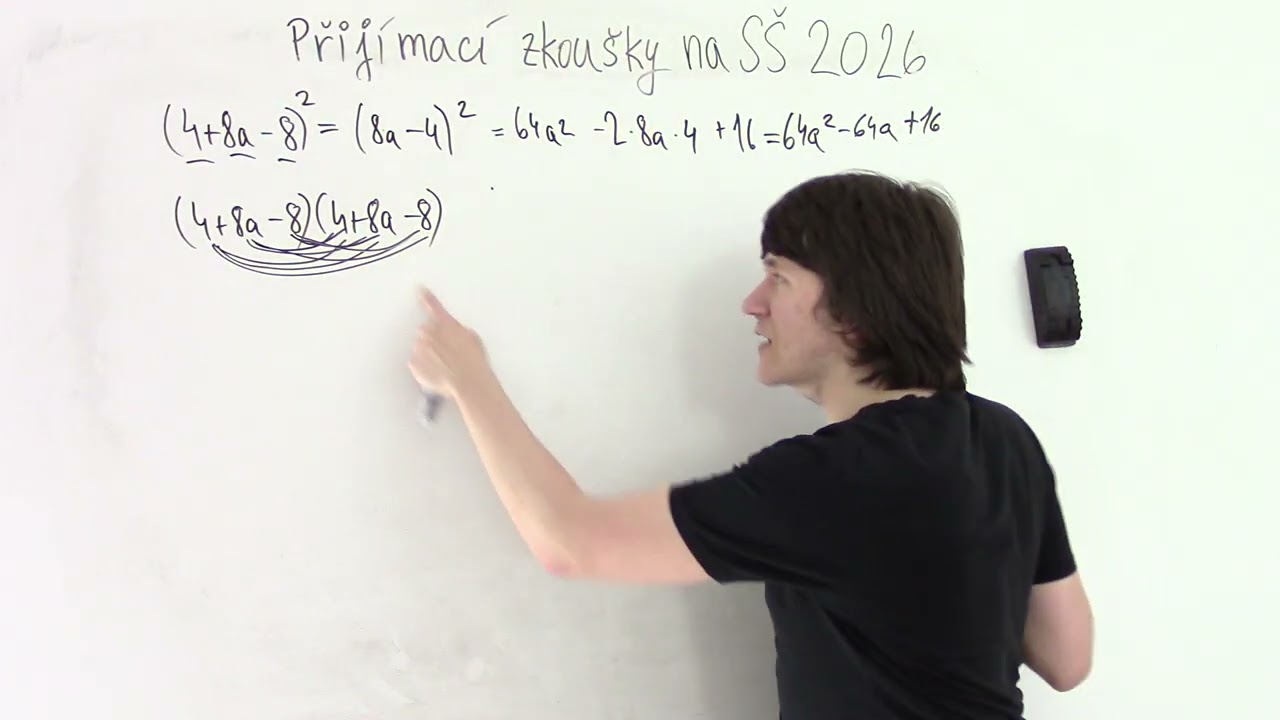 Přijímací zkoušky na SŠ 2026
(4+8a-8)² = (8a-4)² = 64a² -2·8a·4 +16=64a²-64a+16
(4+8a-8)(4+8a-8)